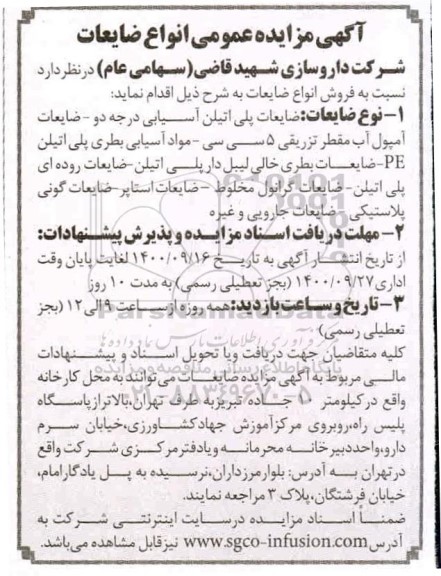 آگهی مزایده عمومی انواع ضایعات
شرکت داروسازی شهید قاضی (سهامی عام) در نظر دارد
نسبت به فروش انواع ضایعات به شرح ذیل اقدام نماید:
۱- نوع ضایعات: ضایعات پلی اتیلن آسیابی درجه دو - ضایعات
آمپول آب مقطر تزریقی ۵ سی سی - مواد آسیابی بطری پلی اتیلن
PE - ضایعات بطری خالی لیبل دار پلی اتیلن - ضایعات روده ای
پلی اتیلن - ضایعات گرانول مخلوط - ضایعات استاپر - ضایعات گونی
پلاستیکی - ضایعات جارویی و غیره
۲- مهلت دریافت اسناد مزایده و پذیرش پیشنهادات:
از تاریخ انتشار آگهی به تاریخ ۱۴۰۰/۰۹/۱۶ لغایت پایان وقت
اداری ۱۴۰۰/۰۹/۲۷ (بجز تعطیلی رسمی) به مدت ۱۰ روز
۳- تاریخ و ساعت بازدید: همه روزه از ساعت ۹ الی ۱۲ (بجز
تعطیلی رسمی)
کلیه متقاضیان جهت دریافت ویا تحویل اسناد و پیشنهادات
مالی مربوط به آگهی مزایده ضایعات می توانند به محل کارخانه
واقع در کیلومتر ۵ جاده تبریز به طرف تهران، بالاتر از پاسگاه
پلیس راه، روبروی مرکز آموزش جهاد کشاورزی، خیابان سرم
دارو، واحد دبیرخانه محرمانه و یا دفتر مرکزی شرکت واقع
در تهران به آدرس: بلوار مرزداران، نرسیده به پل یادگار امام،
خیابان فرشتگان، پلاک ۳ مراجعه نمایند.
ضمناً اسناد مزایده در سایت اینترنتی شرکت به
آدرس www.sgco-infusion.com نیز قابل مشاهده می باشد.